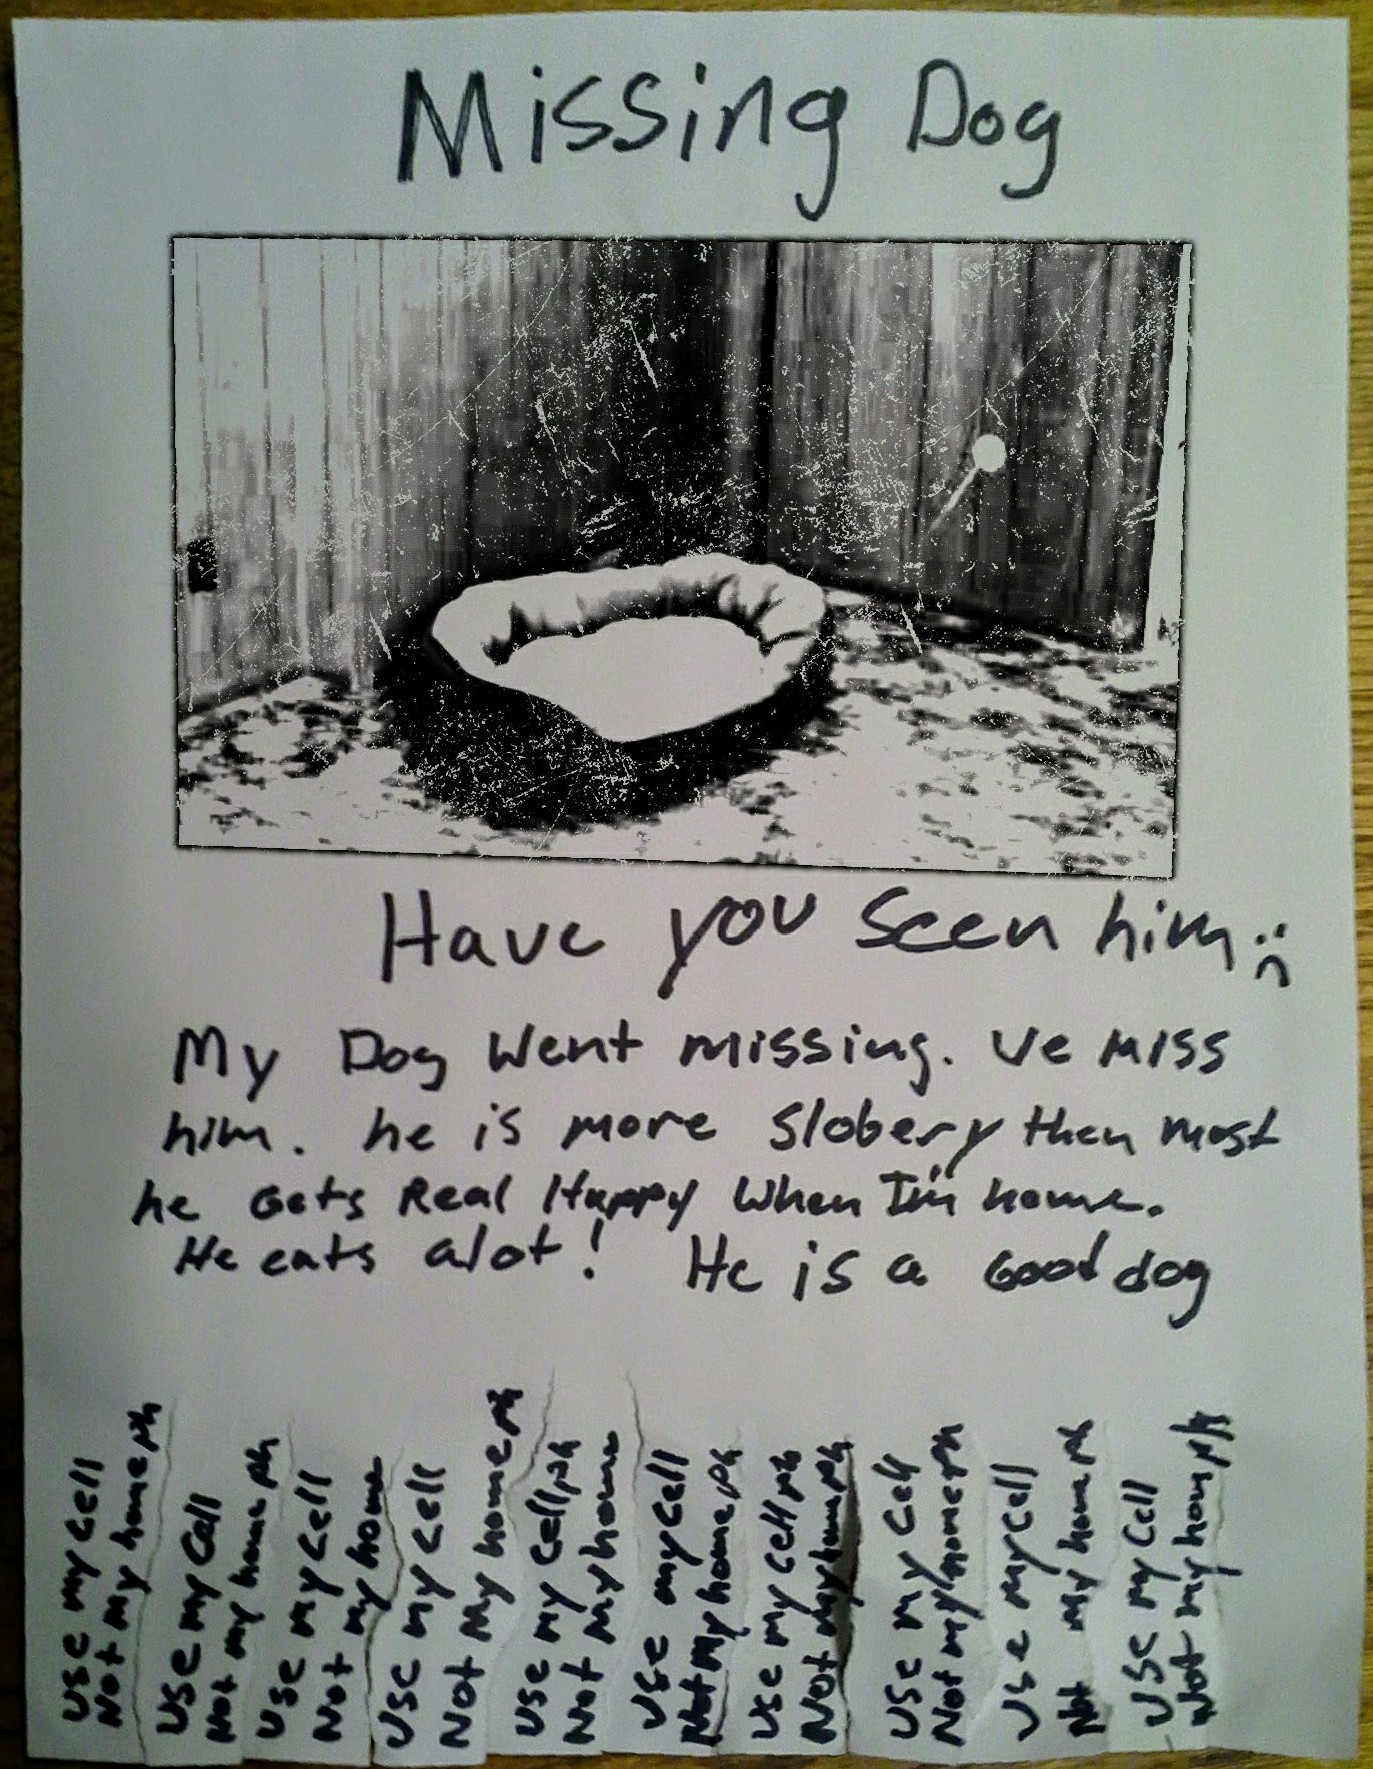 Missing Dog
Have you seen him :(
My Dog Went missing. Ve miss
him. he is more slobery then most
he Gets Real Happy When I'm home.
He eats alot! He is a Good dog
Use my cell
Not my home ph
Use my cell
Not my home ph
Use my cell
Not my home
Use my cell
Not my home ph
Use my cell ph
Not my home
Use my cell
Not my home ph
Use my cell ph
Not my home ph
Use my cell
Not my home ph
Use my cell
Not my home ph
Use my cell
Not my hom ph